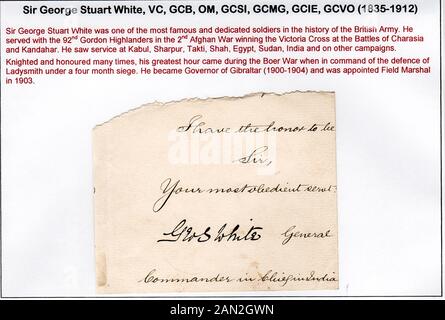 Sir George Stuart White, VC, GCB, OM, GCSI, GCMG, GCIE, GCVO (1835-1912)
Sir George Stuart White was one of the most famous and dedicated soldiers in the history of the British Army. He
served with the 92nd Gordon Highlanders in the 2nd Afghan War winning the Victoria Cross at the Battles of Charasia
and Kandahar. He saw service at Kabul, Sharpur, Takti, Shah, Egypt, Sudan, India and on other campaigns.
Knighted and honoured many times, his greatest hour came during the Boer War when in command of the defence of
Ladysmith under a four month siege. He became Governor of Gibraltar (1900-1904) and was appointed Field Marshal
in 1903.
I have the honor to be
Sir,
Your most obedient servt:
Geo S White General
Commander in Chief in India
alamy
Image ID: 2AN2GWN
www.alamy.com